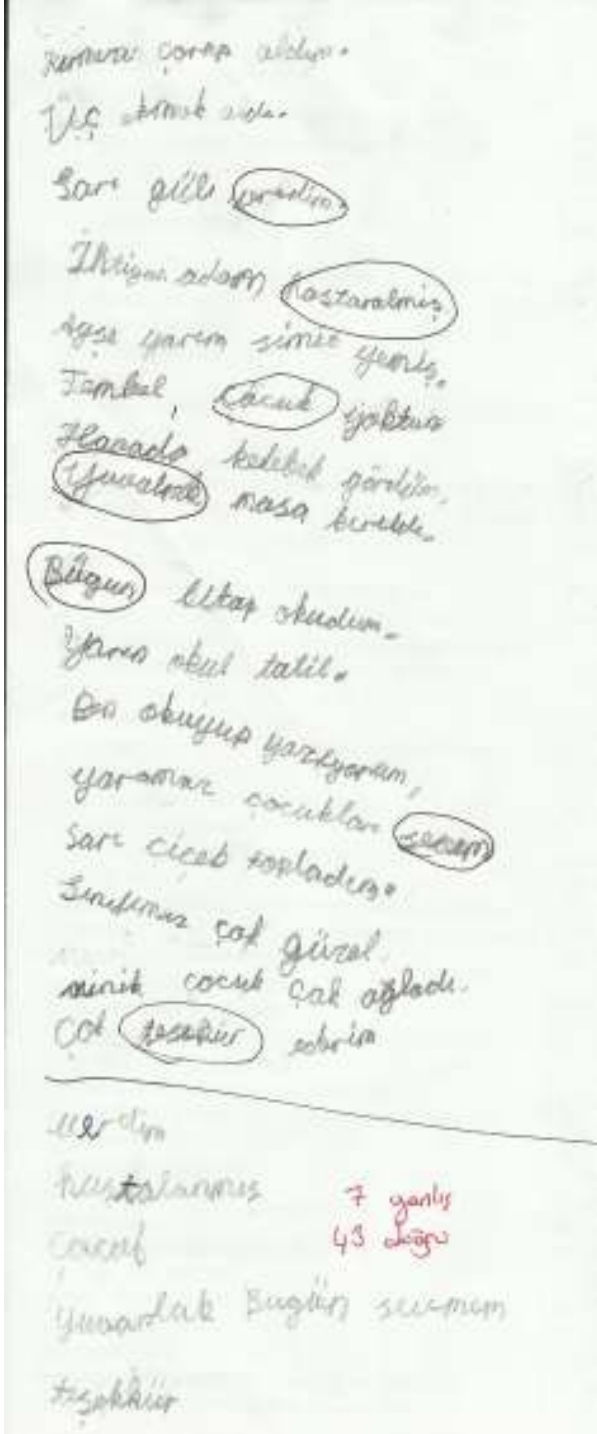 Kırmızı çorap aldım.
Üç ekmek aldı.
Sarı gülü
İhtiyar adam hastaralmış
Ayşe yarım simit yemiş.
Tembel çocuk yoktur
Havada kelebek gördüm.
masa kırıldı.
Bügun kitap okudum.
Yarın okul tatil.
Ben okuyup yazıyorum,
yaramaz çocukları
Sarı çiçek topladım.
Sınıfımız çok güzel.
minik çocuk çok ağladı.
Çok teşekür ederim
verdim
hastalanmış 7 yanlış
çocuk 43 doğru
yuvarlak Bugün sevmem
teşekkür